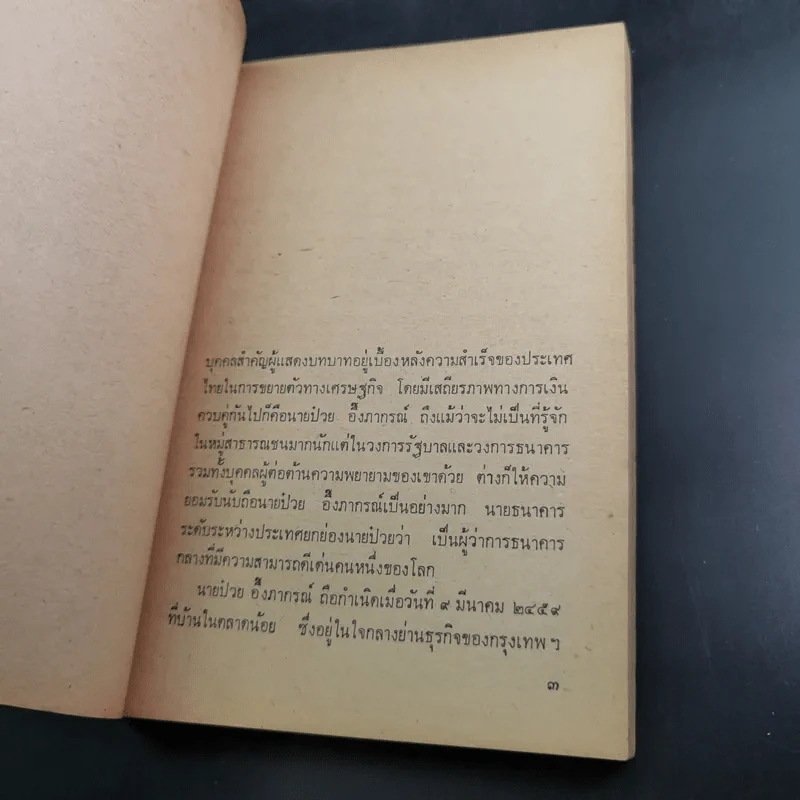 บุคคลสำคัญผู้แสดงบทบาทอยู่เบื้องหลังความสำเร็จของประเทศ
ไทยในการขยายตัวทางเศรษฐกิจ โดยมีเสถียรภาพทางการเงิน
ควบคู่กันไปก็คือนายป๋วย อึ๊งภากรณ์ ถึงแม้ว่าจะไม่เป็นที่รู้จัก
ในหมู่สาธารณชนมากนักแต่ในวงการรัฐบาลและวงการธนาคาร
รวมทั้งบุคคลผู้ต่อต้านความพยายามของเขาด้วย ต่างก็ให้ความ
ยอมรับนับถือนายป๋วย อึ๊งภากรณ์เป็นอย่างมาก นายธนาคาร
ระดับระหว่างประเทศยกย่องนายป๋วยว่า เป็นผู้ว่าการธนาคาร
กลางที่มีความสามารถดีเด่นคนหนึ่งของโลก
นายป๋วย อึ๊งภากรณ์ ถือกำเนิดเมื่อวันที่ ๙ มีนาคม ๒๔๕๙
ที่บ้านในตลาดน้อย ซึ่งอยู่ในใจกลางย่านธุรกิจของกรุงเทพ ฯ
๓